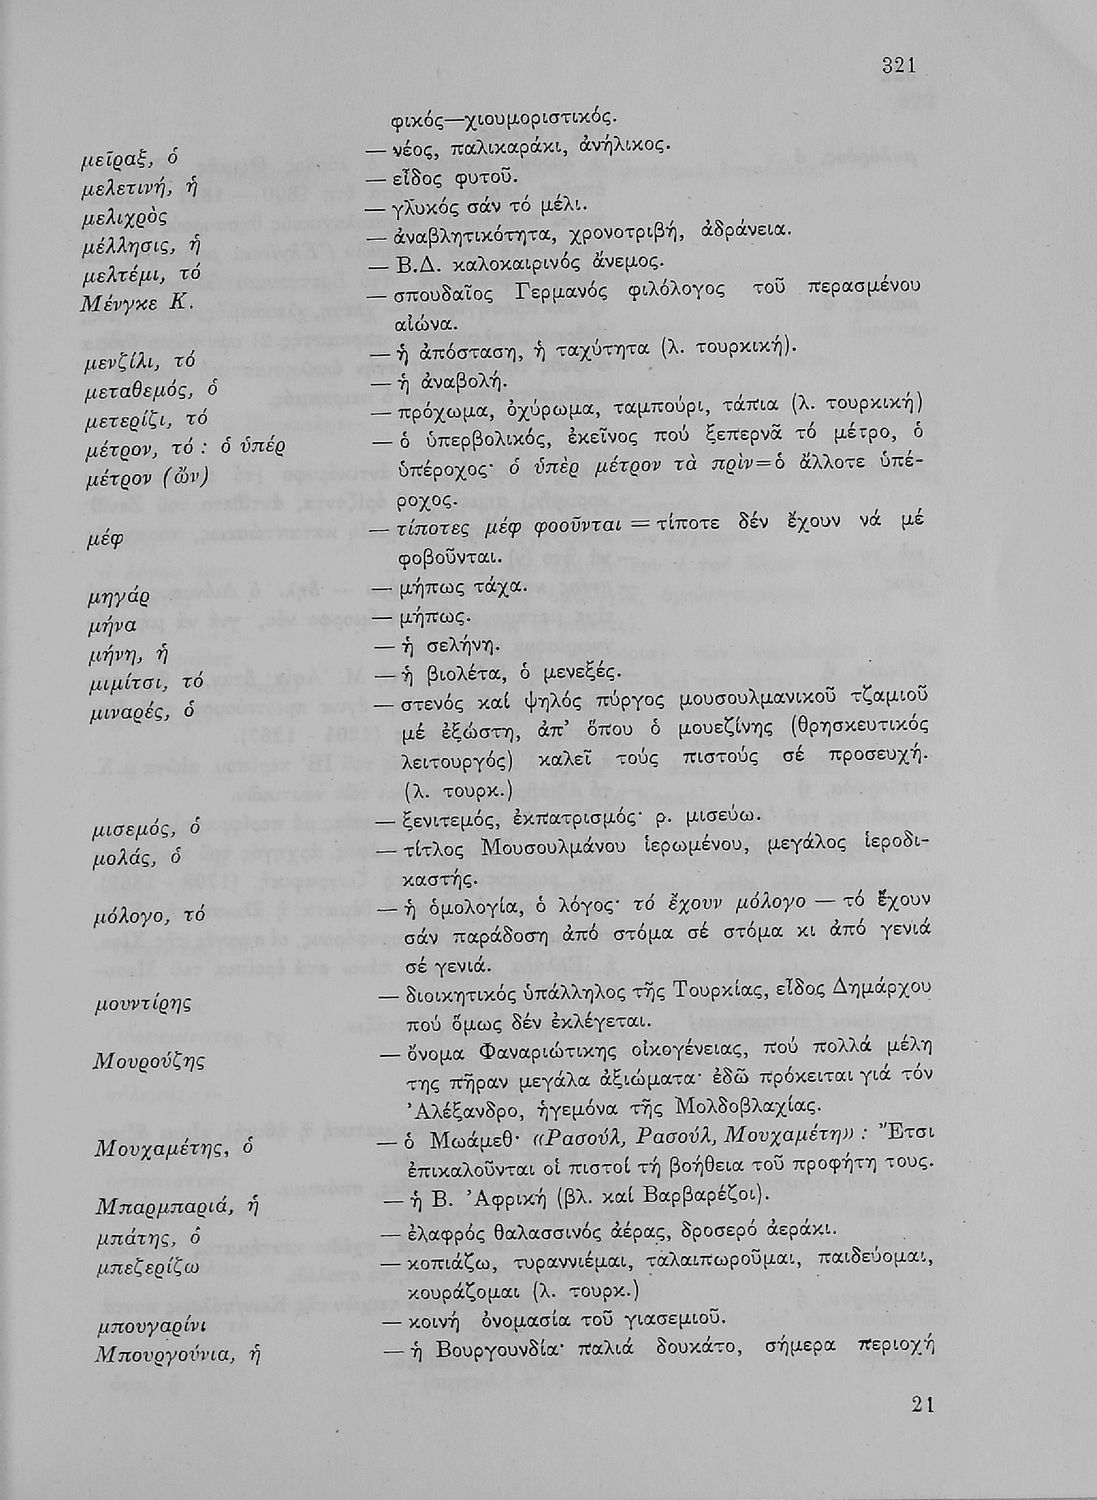 321
φικός—χιουμοριστικός.
μεῖραξ, ὁ — νέος, παλικαράκι, ἀνήλικος.
μελετινή, ἡ — εἶδος φυτοῦ.
μελιχρὸς — γλυκός σάν τό μέλι.
μέλλησις, ἡ — ἀναβλητικότητα, χρονοτριβή, ἀδράνεια.
μελτέμι, τό — Β.Δ. καλοκαιρινός ἄνεμος.
Μένγκε Κ. — σπουδαῖος Γερμανός φιλόλογος τοῦ περασμένου
αἰώνα.
μενζίλι, τό — ἡ ἀπόσταση, ἡ ταχύτητα (λ. τουρκική).
μεταθεμός, ὁ — ἡ ἀναβολή.
μετερίζι, τό — πρόχωμα, ὀχύρωμα, ταμπούρι, τάπια (λ. τουρκική)
μέτρον, τό : ὁ ὑπέρ — ὁ ὑπερβολικός, ἐκεῖνος πού ξεπερνᾶ τό μέτρο, ὁ
μέτρον (ὤν) ὑπέροχος· ὁ ὑπὲρ μέτρον τὰ πρὶν=ὁ ἄλλοτε ὑπέ-
ροχος.
μέφ — τίποτες μέφ φοοῦνται = τίποτε δέν ἔχουν νά μέ
φοβοῦνται.
μηγάρ — μήπως τάχα.
μήνα — μήπως.
μήνη, ἡ — ἡ σελήνη.
μιμίτσι, τό — ἡ βιολέτα, ὁ μενεξές.
μιναρές, ὁ — στενός καί ψηλός πύργος μουσουλμανικοῦ τζαμιοῦ
μέ ἐξώστη, ἀπ’ ὅπου ὁ μουεζίνης (θρησκευτικός
λειτουργός) καλεῖ τούς πιστούς σέ προσευχή.
(λ. τουρκ.)
μισεμός, ὁ — ξενιτεμός, ἐκπατρισμός· ρ. μισεύω.
μολάς, ὁ — τίτλος Μουσουλμάνου ἱερωμένου, μεγάλος ἱεροδι-
καστής.
μόλογο, τό — ἡ ὁμολογία, ὁ λόγος· τό ἔχουν μόλογο — τό ἔχουν
σάν παράδοση ἀπό στόμα σέ στόμα κι ἀπό γενιά
σέ γενιά.
μουντίρης — διοικητικός ὑπάλληλος τῆς Τουρκίας, εἶδος Δημάρχου
πού ὅμως δέν ἐκλέγεται.
Μουρούζης — ὄνομα Φαναριώτικης οἰκογένειας, πού πολλά μέλη
της πῆραν μεγάλα ἀξιώματα· ἐδῶ πρόκειται γιά τόν
Ἀλέξανδρο, ἡγεμόνα τῆς Μολδοβλαχίας.
Μουχαμέτης, ὁ — ὁ Μωάμεθ· «Ρασούλ, Ρασούλ, Μουχαμέτη» : Ἔτσι
ἐπικαλοῦνται οἱ πιστοί τή βοήθεια τοῦ προφήτη τους.
Μπαρμπαριά, ἡ — ἡ Β. Ἀφρική (βλ. καί Βαρβαρέζοι).
μπάτης, ὁ — ἐλαφρός θαλασσινός ἀέρας, δροσερό ἀεράκι.
μπεζερίζω — κοπιάζω, τυραννιέμαι, ταλαιπωροῦμαι, παιδεύομαι,
κουράζομαι (λ. τουρκ.)
μπουγαρίνι — κοινή ὀνομασία τοῦ γιασεμιοῦ.
Μπουργούνια, ἡ — ἡ Βουργουνδία· παλιά δουκάτο, σήμερα περιοχή
21